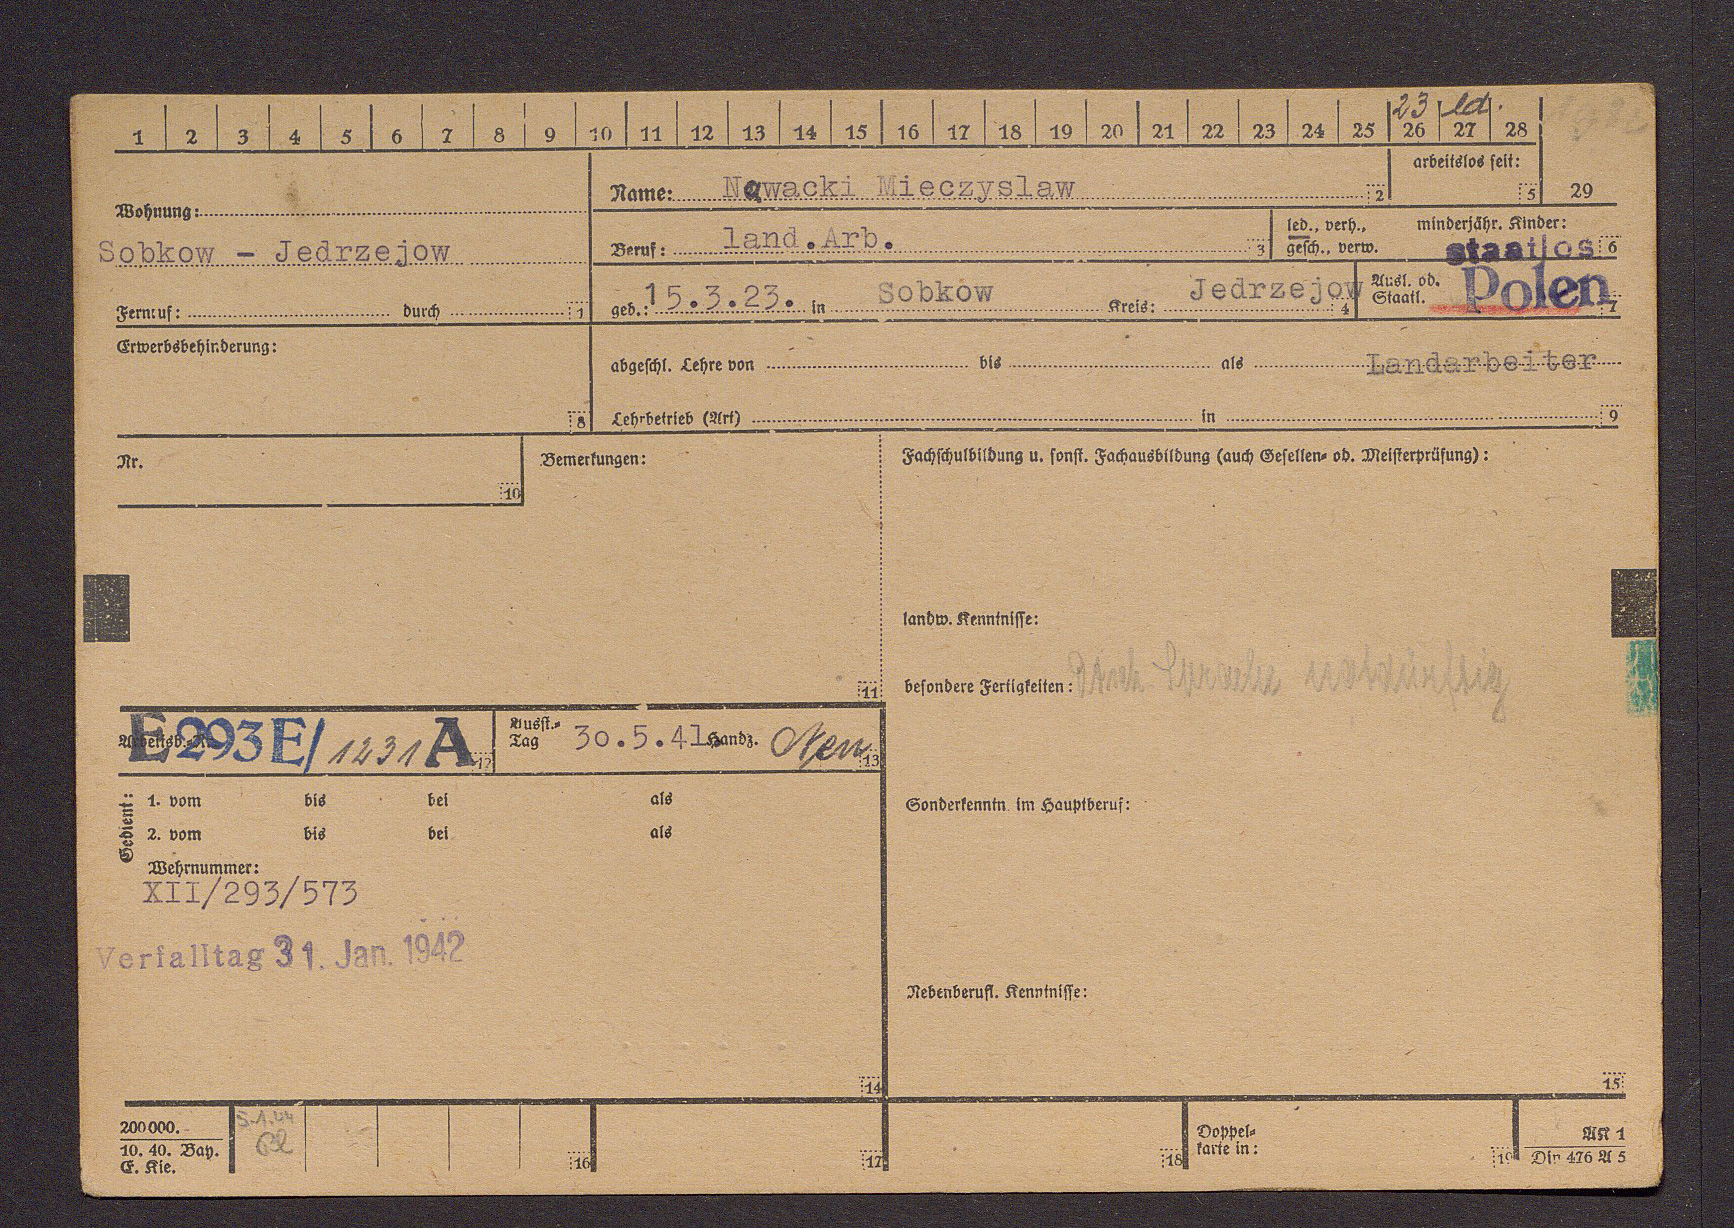 23 led.
1 2 3 4 5 6 7 8 9 10 11 12 13 14 15 16 17 18 19 20 21 22 23 24 25 26 27 28
arbeitslos seit:
5 29
Name: Nowacki Mieczyslaw 2
Wohnung:
Sobkow - Jedrzejow
Beruf: land.Arb. 3
led., verh.,
gesch., verw.
minderjähr. Kinder:
staatlos 6
Fernruf: durch 1
geb.: 15.3.23. in Sobkow Kreis: Jedrzejow 4
Ausl. od.
Staatl. Polen 7
Erwerbsbehinderung:
8
abgeschl. Lehre von bis als Landarbeiter
Lehrbetrieb (Art) in 9
Nr.
10
Bemerkungen:
11
Fachschulbildung u. sonst. Fachausbildung (auch Gesellen- od. Meisterprüfung):
landw. Kenntnisse:
besondere Fertigkeiten:
Arbeitsb.-Nr. E 293 E/ 1231 A 12
Ausst.-
Tag 30.5.41 Handz. 13
Gedient:
1. vom bis bei als
2. vom bis bei als
Wehrnummer:
XII/293/573
Verfalltag 31. Jan. 1942
14
Sonderkenntn. im Hauptberuf:
Nebenberufl. Kenntnisse:
15
200000.
10. 40. Bay.
E. Kie.
5.1.44
16
17
18
Doppel-
karte in: 19
AK 1
Din 476 A 5